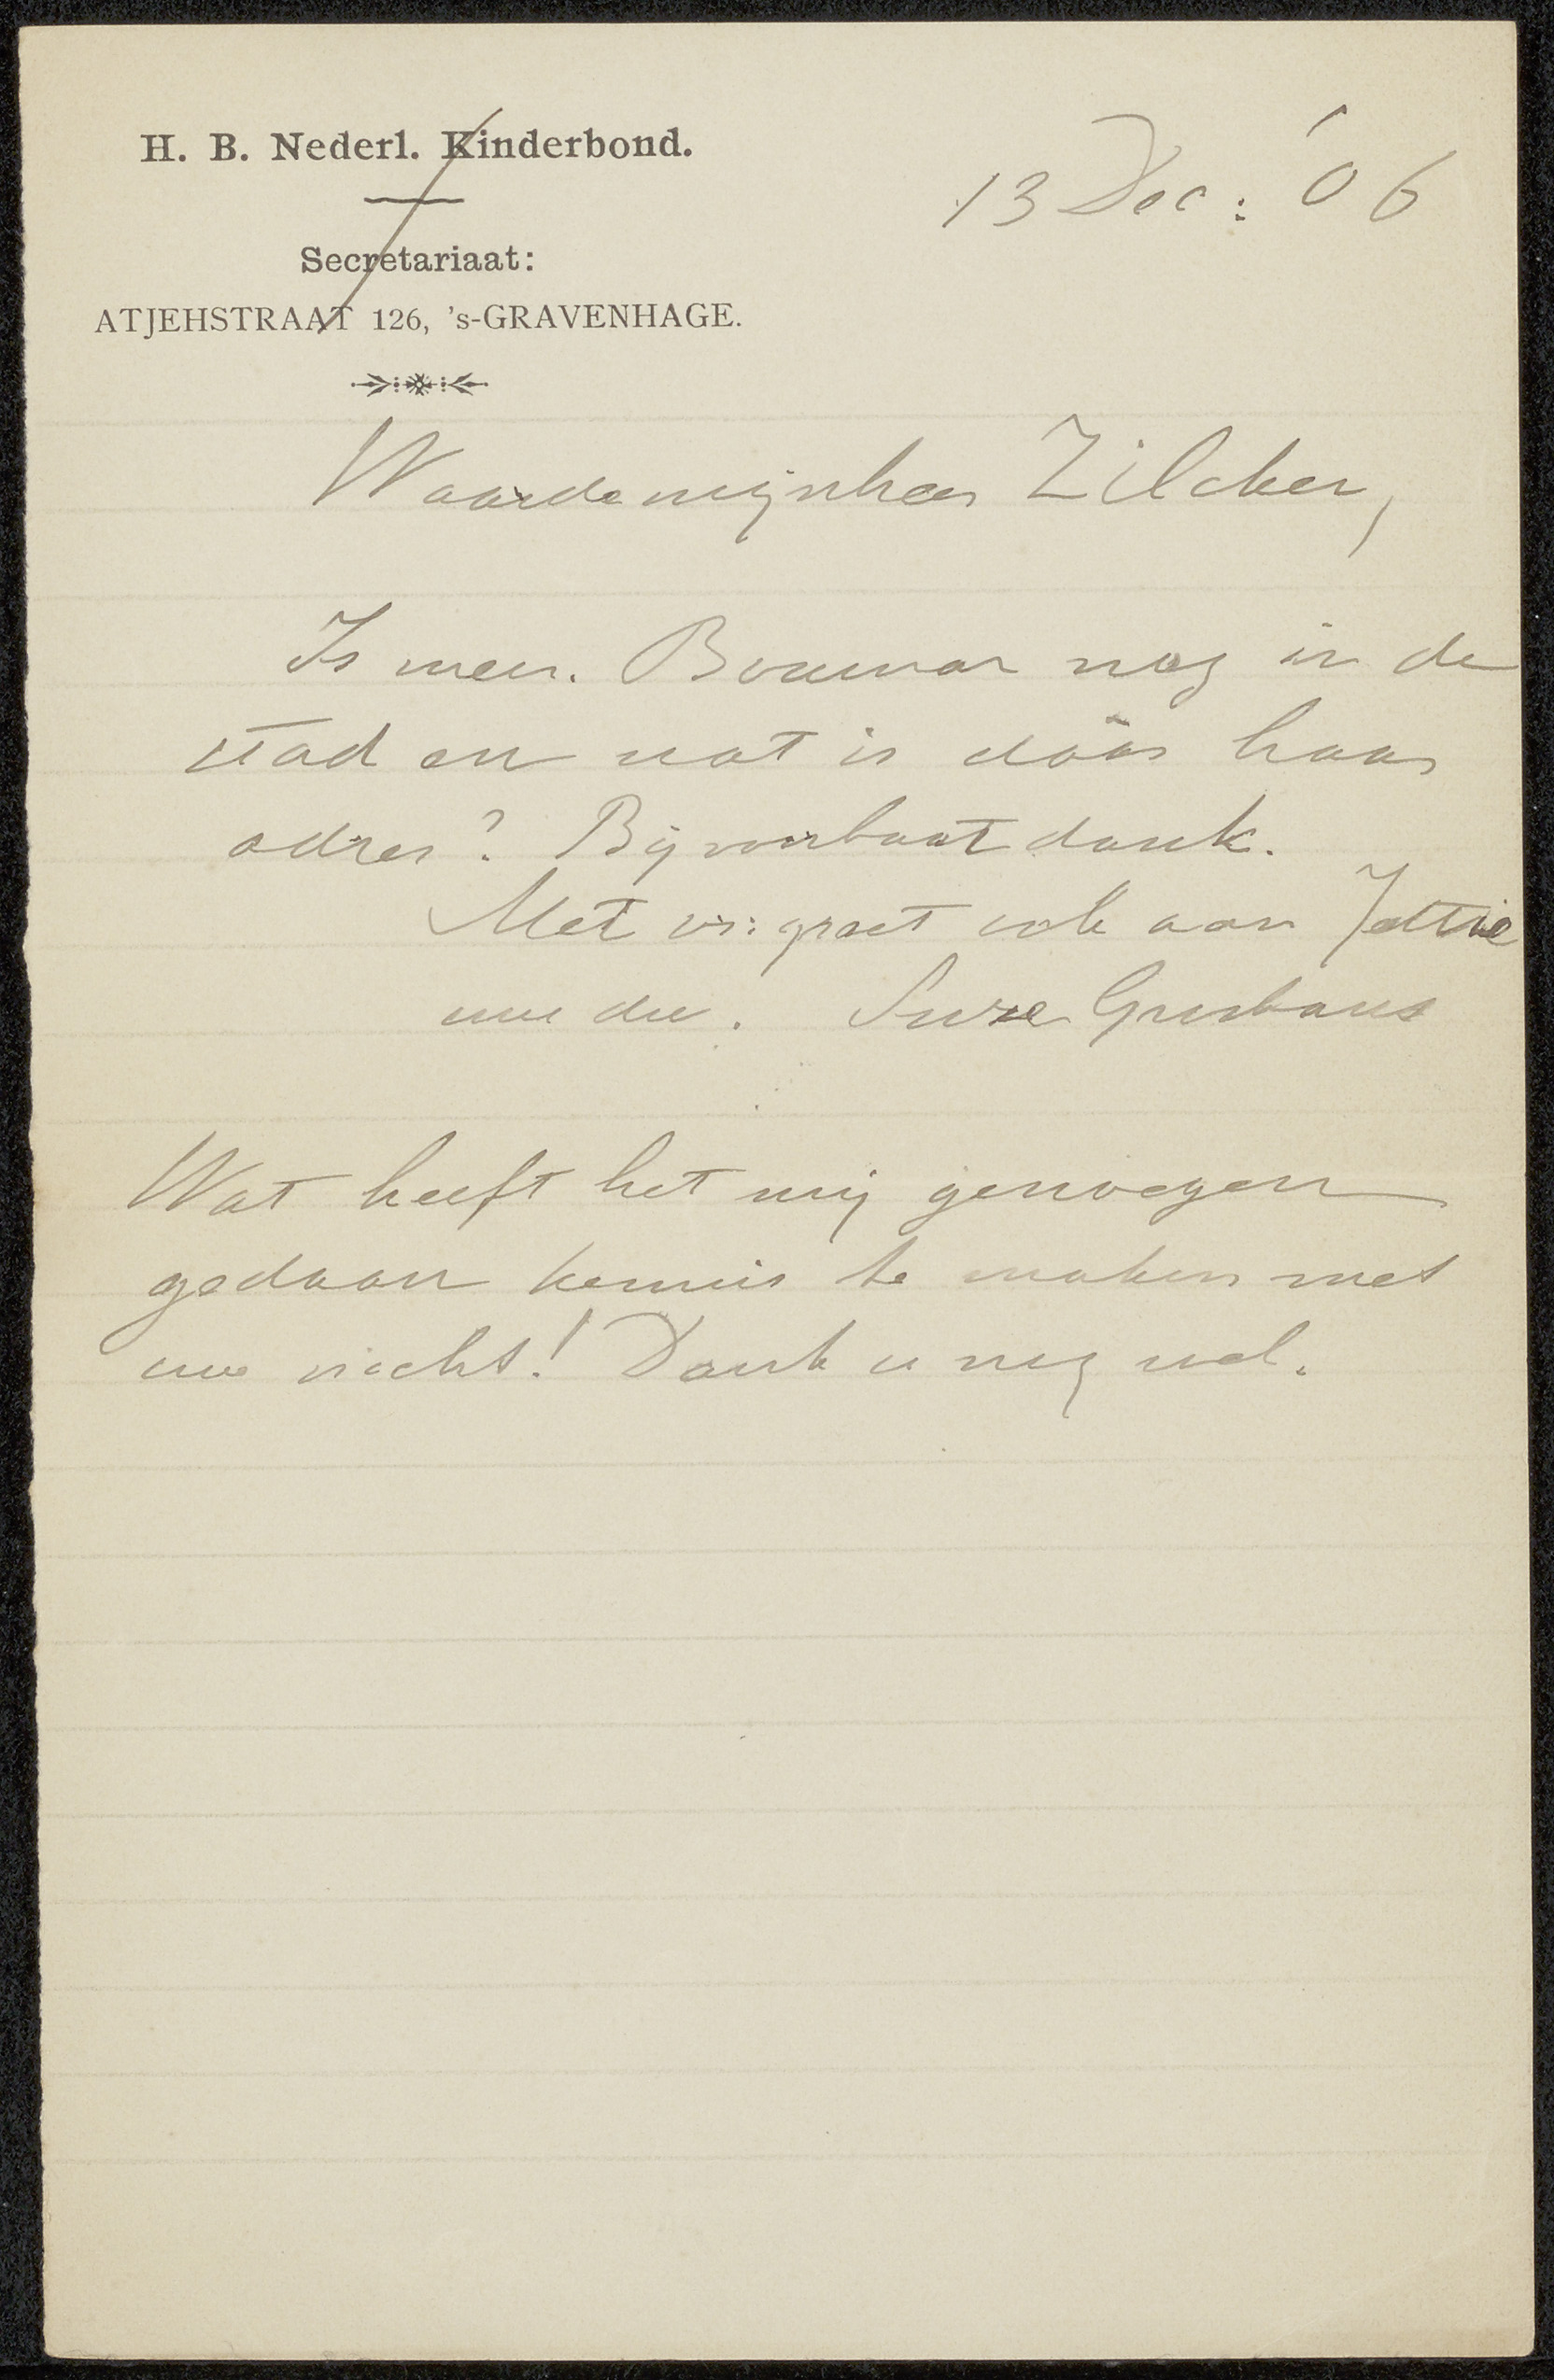 H. B. Nederl. Kinderbond.
13 Dec: '06
Secretariaat:
ATJEHSTRAAT 126, 's-GRAVENHAGE.
Waarde mijnheer Zilcken,
Is mevr. Bouwer nog in de
stad en wat is dààr haar
adres? Bij voorbaat dank.
Met vr: groet ook aan Jettie
uwe dw. Suze Groshans
Wat heeft het mij genoegen
gedaan kennis te maken met
uw nicht! Dank u nog wel.